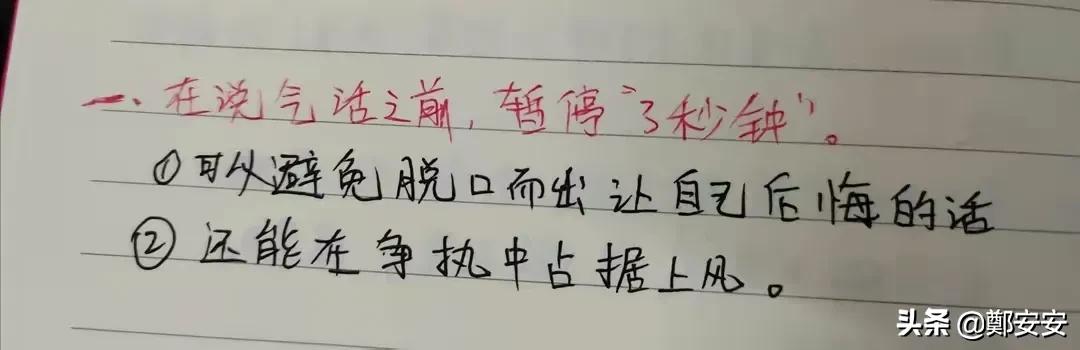 一、在说气话之前,暂停“3秒钟”。
①可以避免脱口而出让自己后悔的话
②还能在争执中占据上风。
头条 @鄭安安